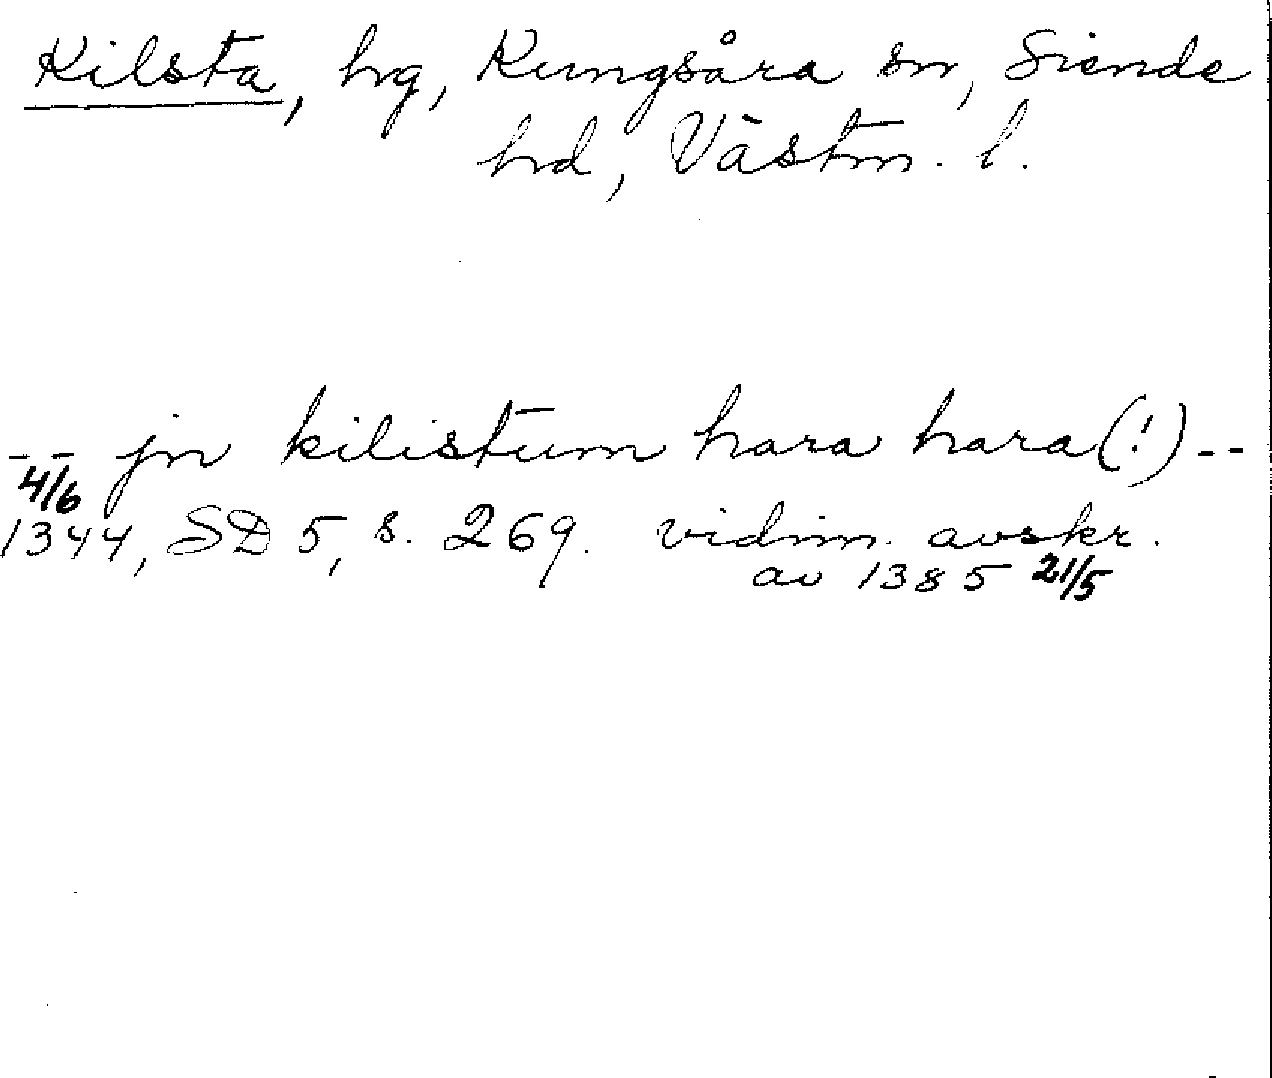 Kilsta, hg, Kungsåra sn, Siende
hd, Västm. l.
-- jn kilistum hara hara(!)--
4/6
1344, SD 5, s. 269. vidim. avskr.
av 1385 21/5